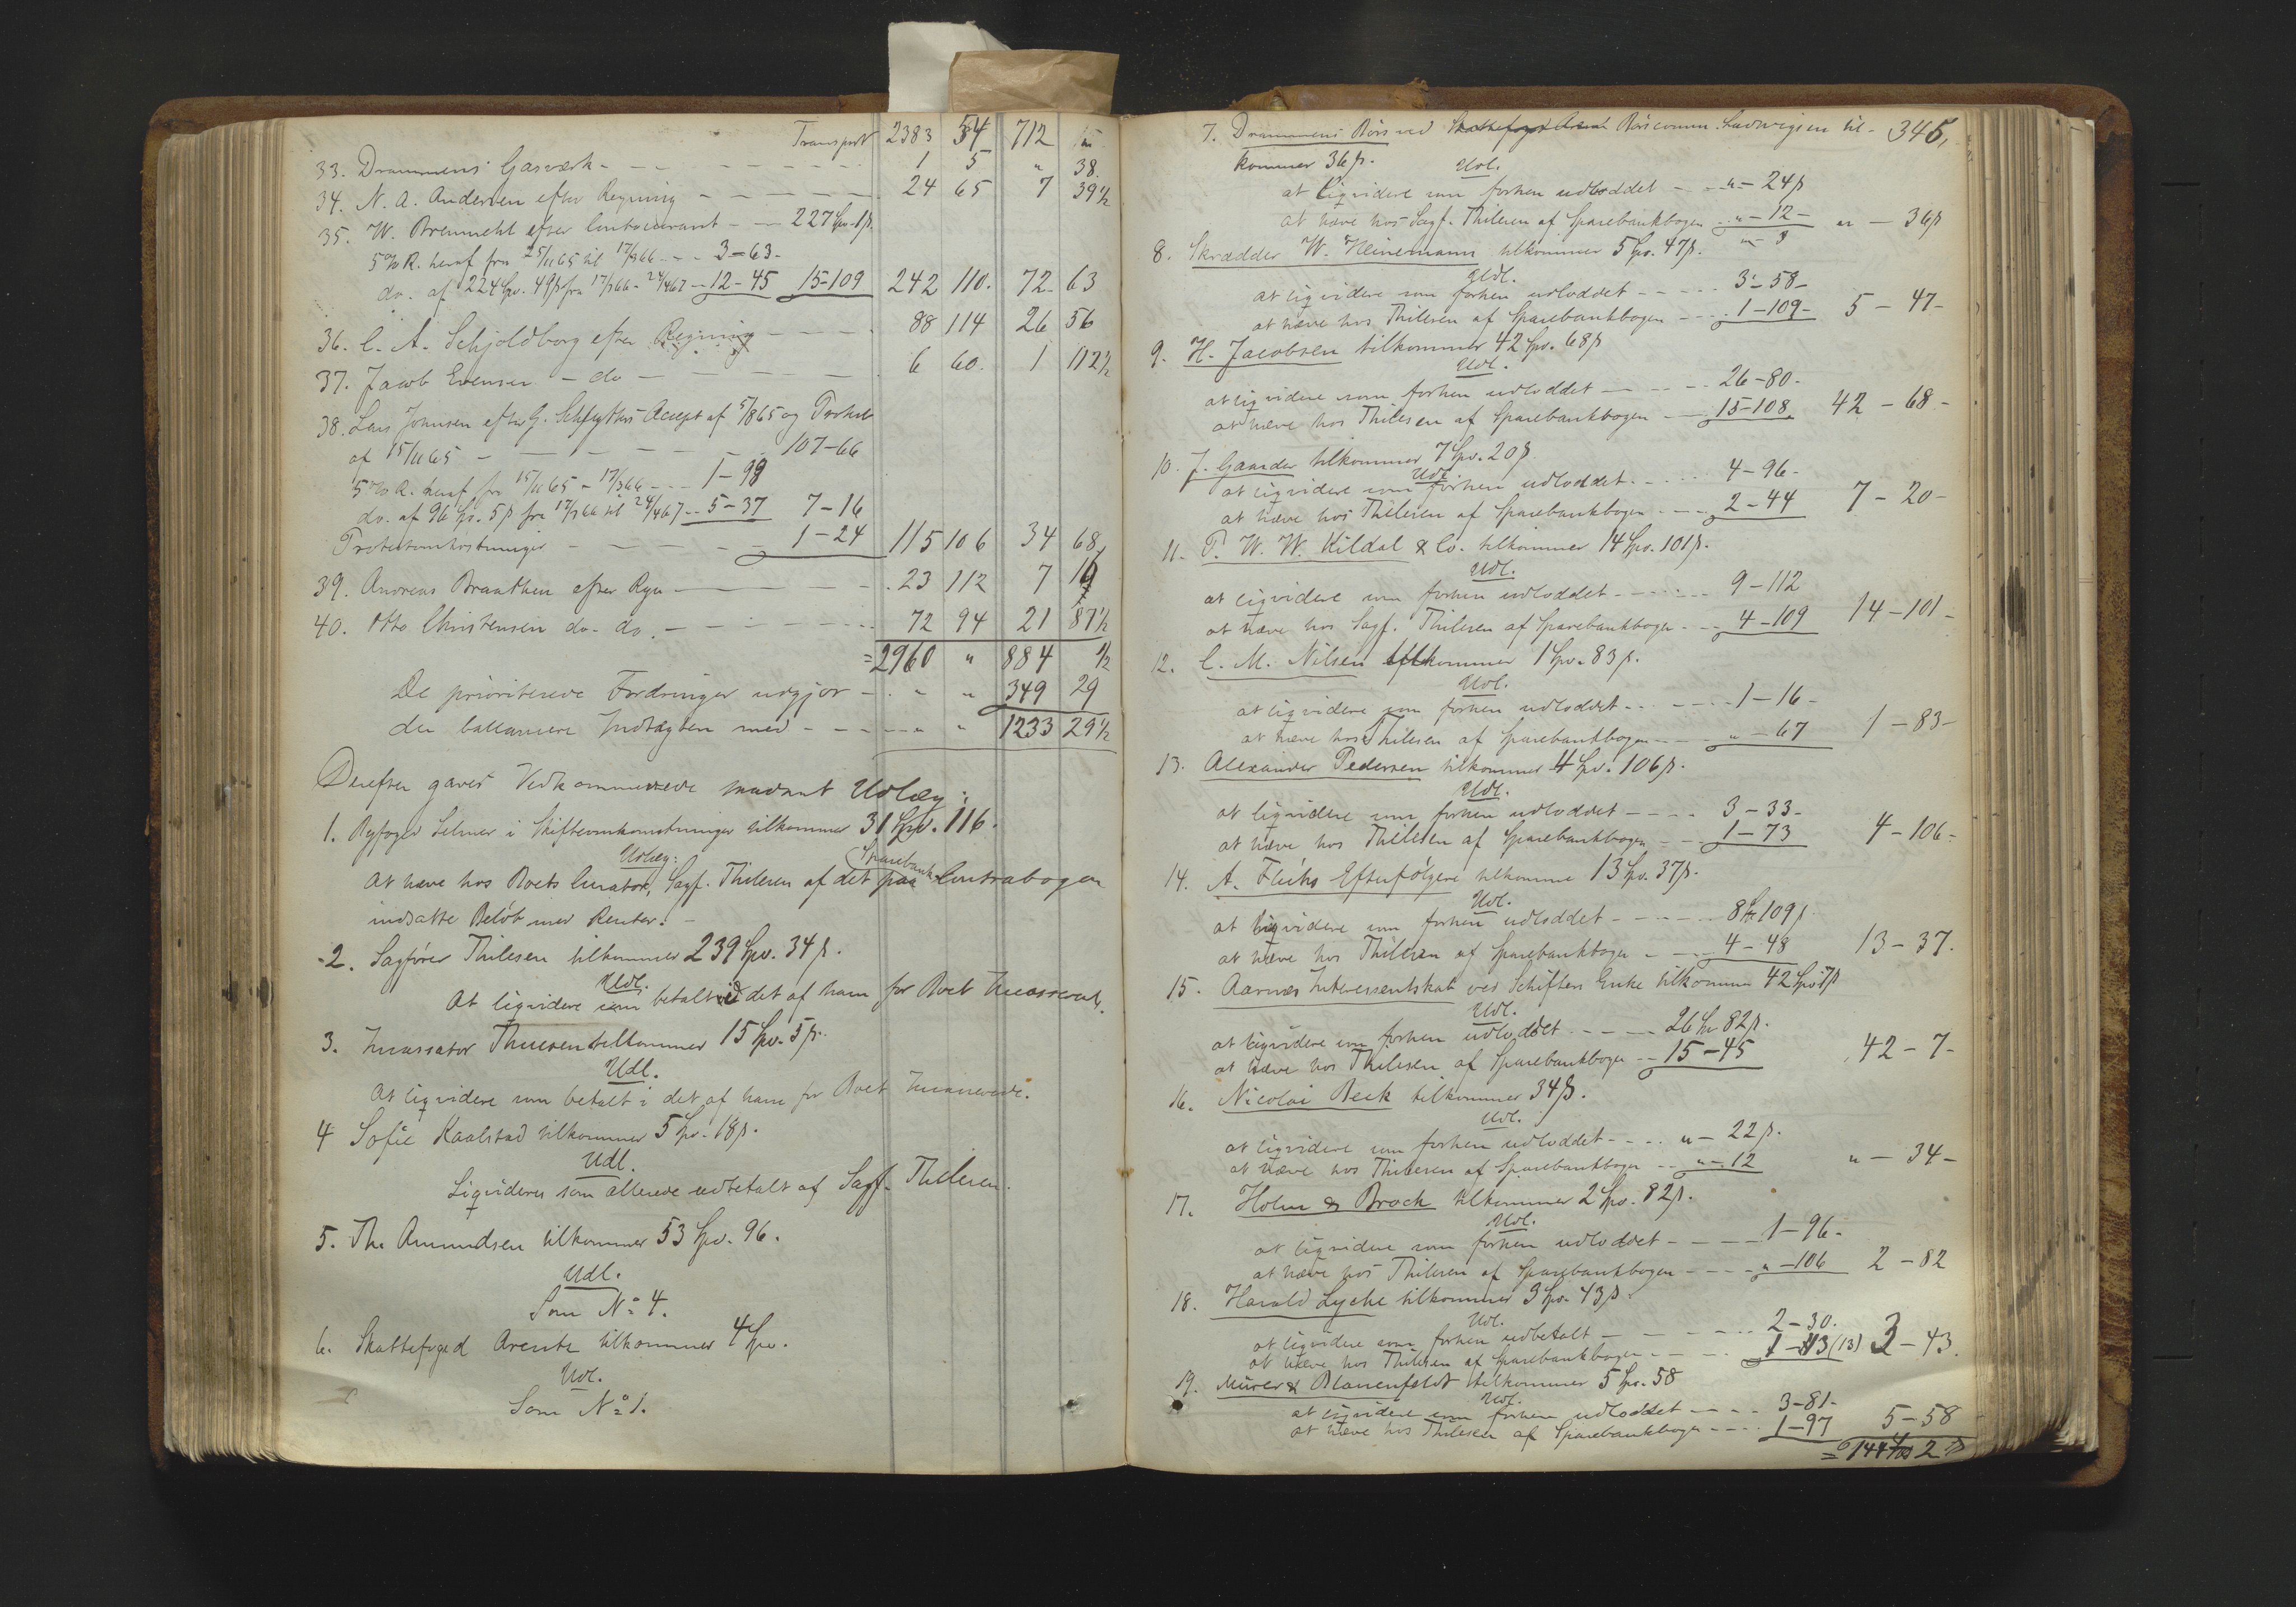 Transport 2383 54 712 "
33. Drammens Gasværk - - - 1 5 " 38.
34. N. A. Andersen efter Regning - - - 24 65 7 39 1/2
35. W. Bremmehl efter Contocourant - - 227 Spd. 1 β.
5 % R. heraf fra 25/11 65 til 17/3 66 - - - 3-63-
do. af 224 Spd. 49 β fra 17/3 66 - 24/4 67 - 12-45 15-109 242 110. 72- 63
36. C. A. Schjoldborg efter Regning - - - 88 114 26 56
37. Jacob Evensen - do - - - 6 60. 1 112 1/2
38. Lars Johnsen efter G. Accept af 5/8 65 og Protest
af 15/11 65 - - - 107-66
5 % R. heraf fra 15/11 65 - 17/3 66 - - - 1-98
do. af 96 Sp. 5 β fra 17/3 66 til 24/4 67 - - 5-37 7-16
Protestomkostninger - - - 1-24 115 106 34 68
39. Andreas Braathen efter Rgn - - - 23 112 7 16
40. Otto Christensen do. do. - - - 72 94 21 87 1/2
= 2960 " 884 1/2
De prioriterede Fordringer udgjør - " " 349 29
der ballancere Indtægten med - - - " " 1233 29 1/2
Derefter gaves Vedkommende saadant Udlæg:
1. Byfoged Selmer i Skifteomkostninger tilkommer 31 Spd. 116.
Udlæg:
At hæve hos Boets Curator, Sagf. Thilesen af det paa Sparebank Contrabogen
indsatte Beløb med Renter. -
2. Sagfører Thilesen tilkommer 239 Spd. 34 β.
Udl.
At liqvidere som betalt i det af ham for Boet Incasserede.
3. Incassator Thuesen tilkommer 15 Spd. 5 β.
Udl.
At liqvidere som betalt i det af ham for Boet Incasserede.
4 Sofie Kaalstad tilkommer 5 Spd. 18 β.
Udl.
Liqvideres som allerede udbetalt af Sagf. Thilesen.
5. Th. Amundsen tilkommer 53 Spd. 96.
Udl.
Som No 4.
6. Skattefoged Arentz tilkommer 4 Spd.
Udl.
Som No 1.
345,
7. Drammens Børs ved Børscomm. Ludwigsen til-
kommer 36 β.
Udl.
at liqvidere som forhen udloddet - - " - 24 β
at hæve hos Sagf. Thilesen af Sparebankbogen - " - 12 - " - 36 β
8. Skrædder W. Heinemann tilkommer 5 Spd. 47 β.
Udl.
at liqvidere som forhen udloddet - - - 3-58-
at hæve hos Thilesen af Sparebankbogen - - 1-109- 5 - 47-
9. H. Jacobsen tilkommer 42 Spd. 68 β
Udl.
at liqvidere som forhen udloddet - - - 26-80-
at hæve hos Thilesen af Sparebankbogen - - 15-108 42 - 68-
10. J. Gaarder tilkommer 7 Spd. 20 β
Udl.
at liqvidere som forhen udloddet - - - 4-96-
at hæve hos Thilesen af Sparebankbogen - - 2-44 7 - 20-
11. P. W. W. Kildal & Co. tilkommer 14 Spd. 101 β.
Udl.
at liqvidere som forhen udloddet - - - 9-112
at hæve hos Sagf. Thilesen af Sparebankbogen - - 4-109 14-101-
12. C. M. Nilsen tilkommer 1 Spd. 83 β.
Udl.
at liqvidere som forhen udloddet - - - 1-16-
at hæve hos Thilesen af Sparebankbogen - - " - 67 1-83-
13. Alexander Pedersen tilkommer 4 Spd. 106 β.
Udl.
at liqvidere som forhen udloddet - - - 3-33-
at hæve hos Thilesen af Sparebankbogen - - 1-73 4-106-
14. A. Flicks Efterfølgere tilkomme 13 Spd. 37 β.
Udl.
at liqvidere som forhen udloddet - - - 8 Sp 109 β
at hæve hos Thilesen af Sparebankbogen - - 4-48 13-37.
15. Aarnæs Interessentskab ved Schiøtters Enke tilkommer 42 Spd. 7 β
Udl.
at liqvidere som forhen udloddet - - - 26 Sp 82 β.
at hæve hos Thilesen af Sparebankbogen - - 15-45 42-7-
16. Nicolai Beck tilkommer 34 β.
Udl.
at liqvidere som forhen udloddet - - - " - 22 β.
at hæve hos Thilesen af Sparebankbogen - - " - 12 " - 34-
17. Holm & Brock tilkommer 2 Spd. 82 β.
Udl.
at liqvidere som forhen udloddet - - - 1-96-
at hæve hos Thilesen af Sparebankbogen - - " -106 2-82
18. Harald Lyche tilkommer 3 Spd. 43 β.
Udl.
at liqvidere som forhen udbetalt - - - 2-30.
at hæve hos Thilesen af Sparebankbogen - - 1-13 (13) 3-43.
19. Mürer & Blauenfeldt tilkommer 5 Spd. 58
Udl.
at liqvidere som forhen udloddet - - - 3-81-
at hæve hos Thilesen af Sparebankbogen - - 1-97 5-58
= 144 Spd 2 β